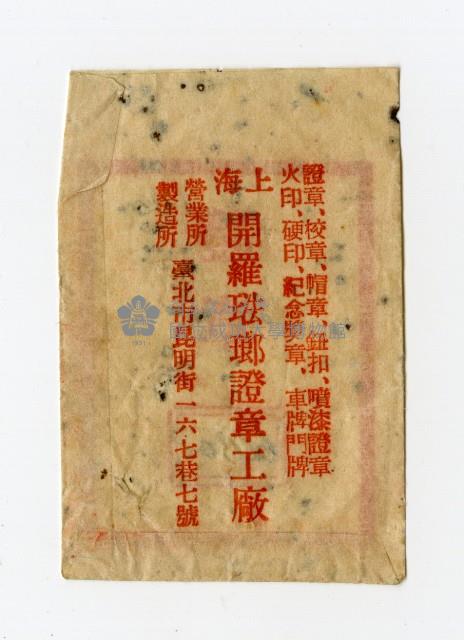 證章、校章、帽章、鈕扣、噴漆證章
火印、硬印、紀念獎章、車牌門牌
上海
開羅琺瑯證章工廠
營業所
製造所
臺北市昆明街一六七巷七號
國立成功大學博物館
1931